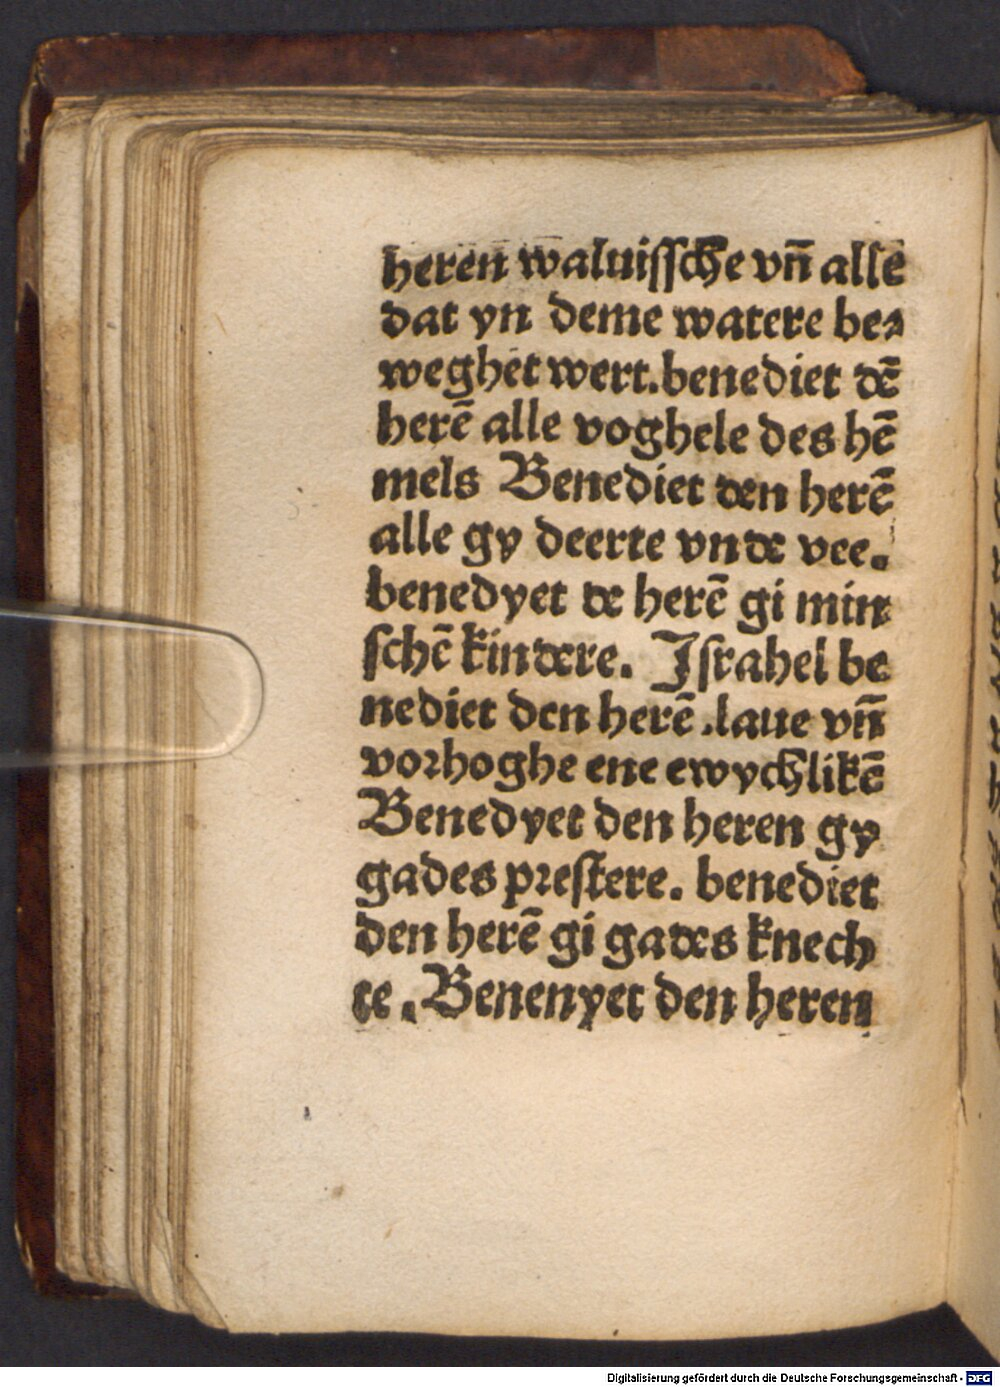 heren waluissche vn̄ alle
dat yn deme watere be⸗
weghet wert.benediet dē
herē alle voghele des hē
mels Benediet den herē
alle gy deerte vnde vee.
benedyet de herē gi min
schē kindere. Israhel be
nediet den herē .laue vn̄
vorhoghe ene ewychlikē
Benedyet den heren gy
gades prestere. benediet
den herē gi gades knech
te .Benenyet den heren
Digitalisierung gefördert durch die Deutsche Forschungsgemeinschaft - DFG